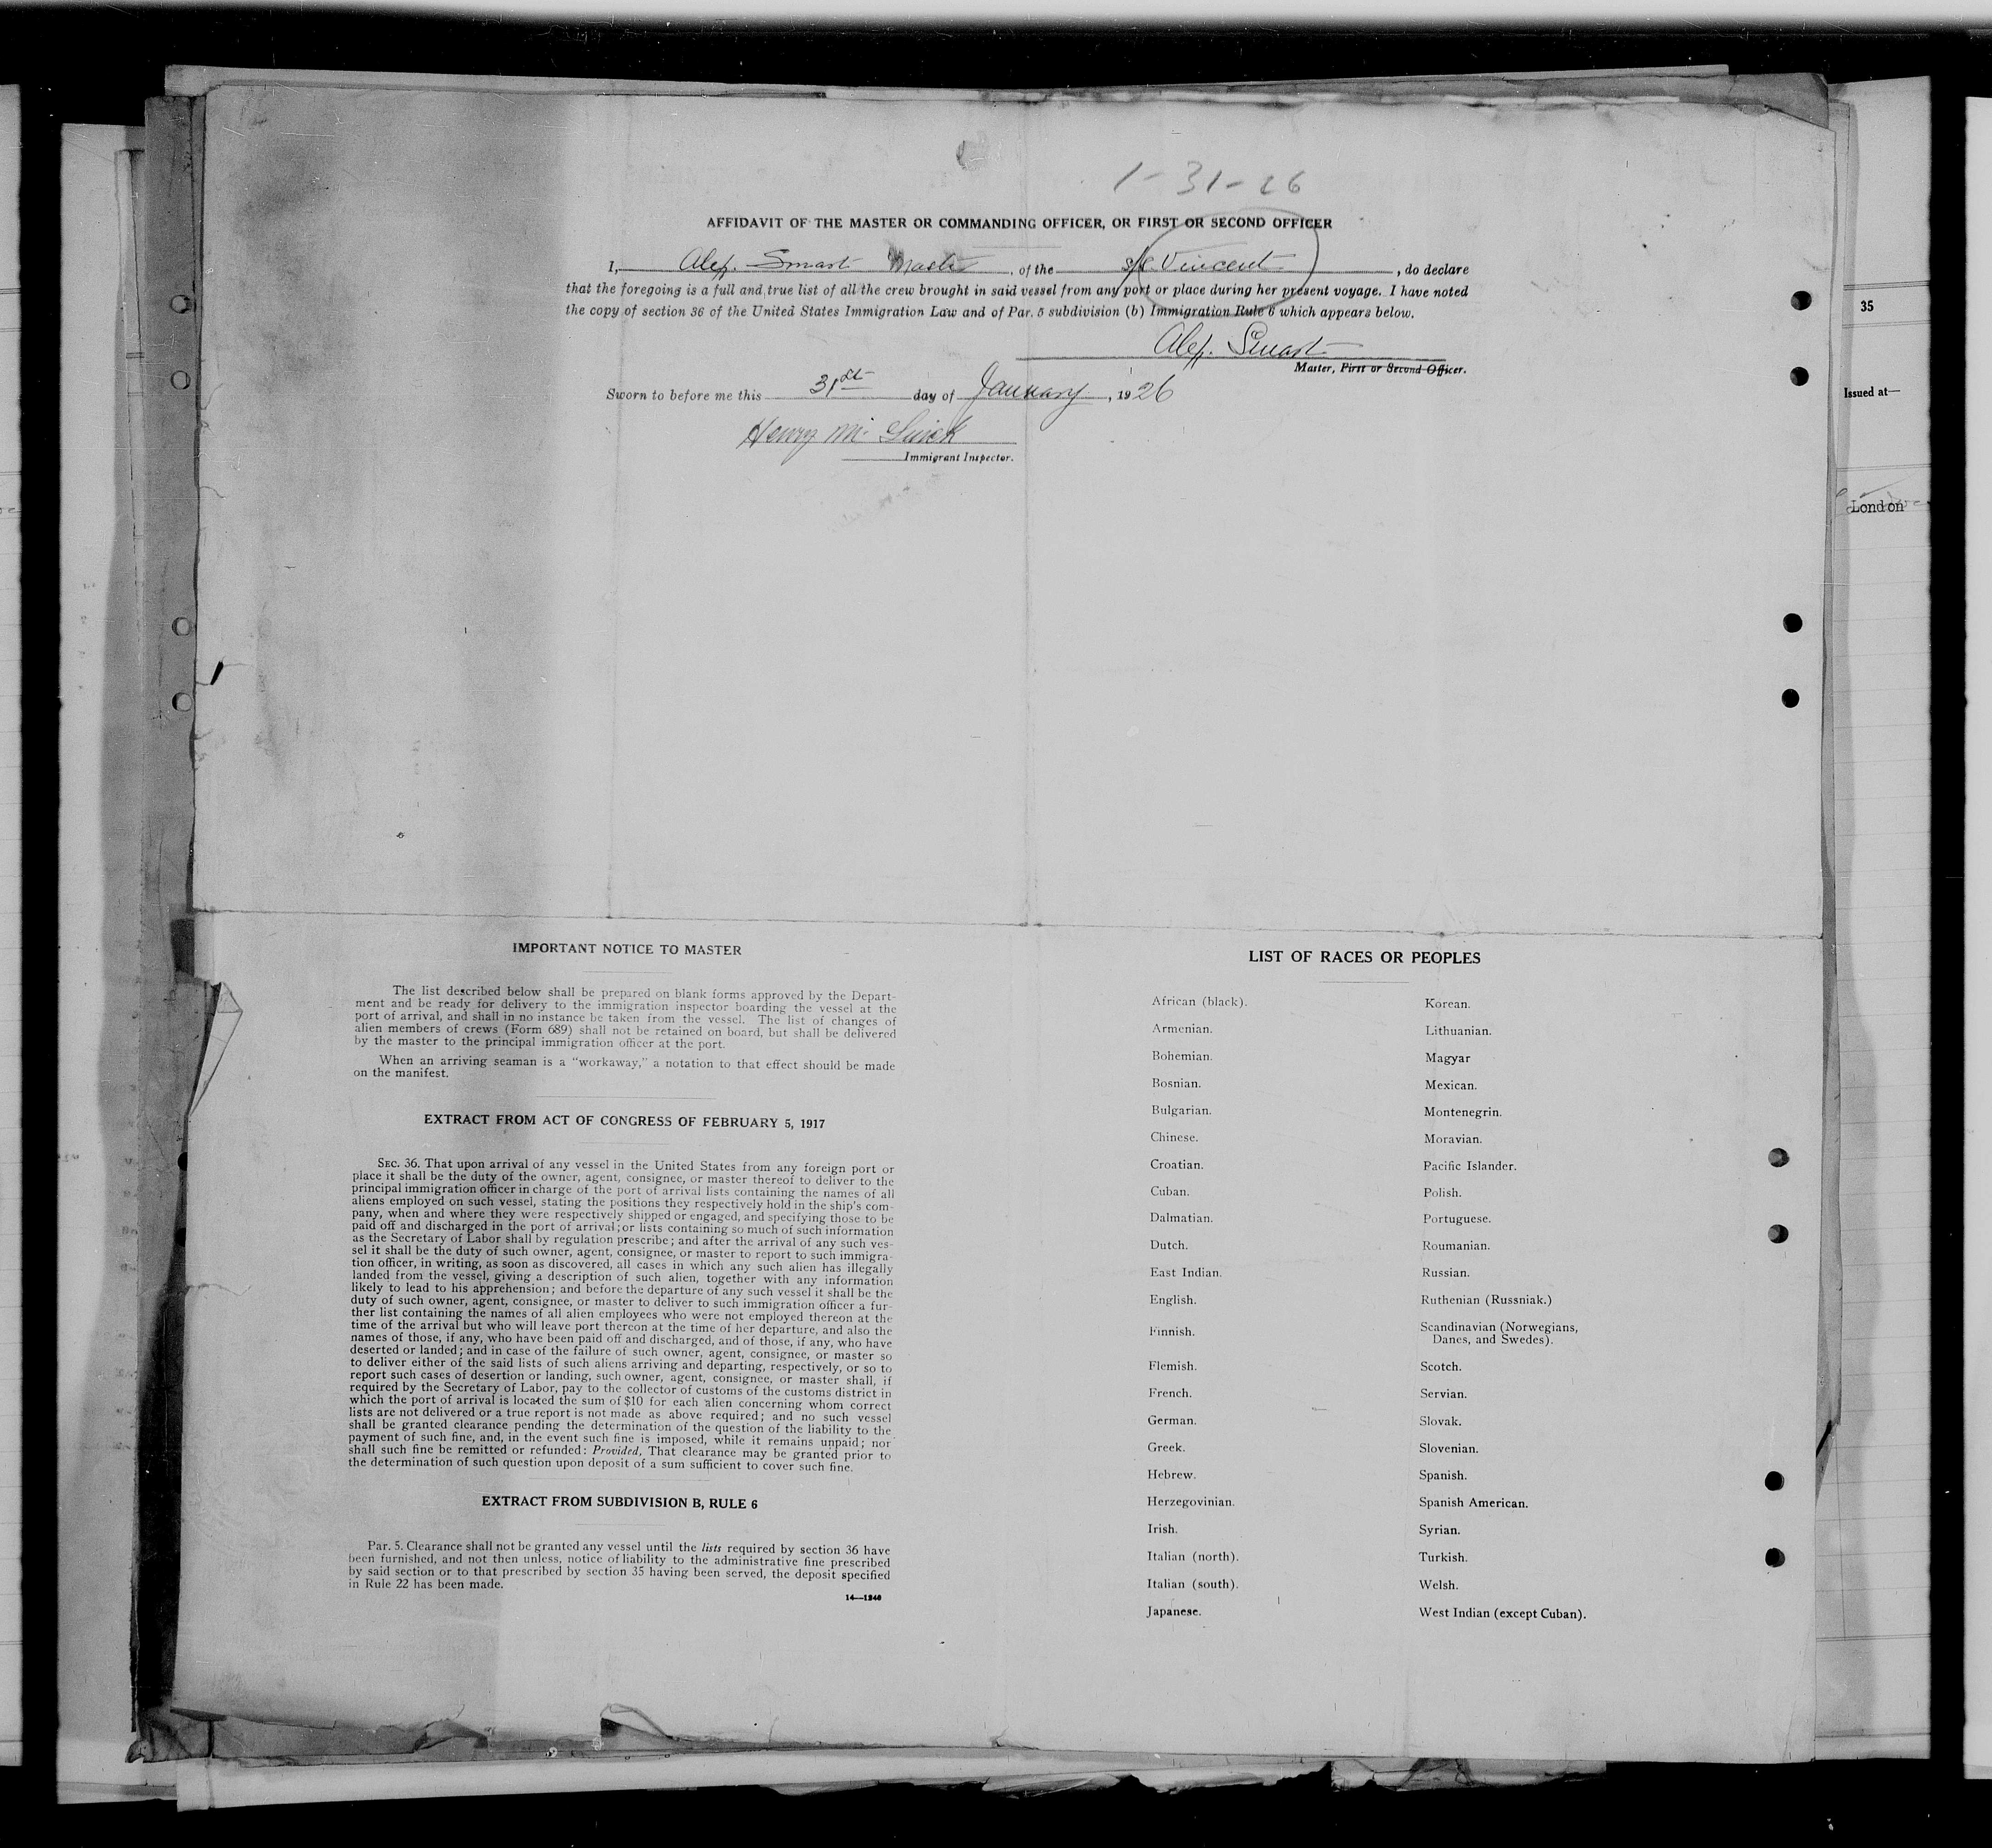 1-31-26
AFFIDAVIT OF THE MASTER OR COMMANDING OFFICER, OR FIRST OR SECOND OFFICER
I, Alex. Smart Master, of the s/s. Vincent, do declare
that the foregoing is a full and true list of all the crew brought in said vessel from any port or place during her present voyage. I have noted
the copy of section 36 of the United States Immigration Law and of Par. 5 subdivision (b) Immigration Rule 6 which appears below.
Alex. Smart
Master, First or Second Officer.
Sworn to before me this 31st day of January, 1926
Henry
Immigrant Inspector.
35
Issued at—
London
IMPORTANT NOTICE TO MASTER
The list described below shall be prepared on blank forms approved by the Depart-
ment and be ready for delivery to the immigration inspector boarding the vessel at the
port of arrival, and shall in no instance be taken from the vessel. The list of changes of
alien members of crews (Form 689) shall not be retained on board, but shall be delivered
by the master to the principal immigration officer at the port.
When an arriving seaman is a "workaway," a notation to that effect should be made
on the manifest.
EXTRACT FROM ACT OF CONGRESS OF FEBRUARY 5, 1917
SEC. 36. That upon arrival of any vessel in the United States from any foreign port or
place it shall be the duty of the owner, agent, consignee, or master thereof to deliver to the
principal immigration officer in charge of the port of arrival lists containing the names of all
aliens employed on such vessel, stating the positions they respectively hold in the ship's com-
pany, when and where they were respectively shipped or engaged, and specifying those to be
paid off and discharged in the port of arrival; or lists containing so much of such information
as the Secretary of Labor shall by regulation prescribe; and after the arrival of any such ves-
sel it shall be the duty of such owner, agent, consignee, or master to report to such immigra-
tion officer, in writing, as soon as discovered, all cases in which any such alien has illegally
landed from the vessel, giving a description of such alien, together with any information
likely to lead to his apprehension; and before the departure of any such vessel it shall be the
duty of such owner, agent, consignee, or master to deliver to such immigration officer a fur-
ther list containing the names of all alien employees who were not employed thereon at the
time of the arrival but who will leave port thereon at the time of her departure, and also the
names of those, if any, who have been paid off and discharged, and of those, if any, who have
deserted or landed; and in case of the failure of such owner, agent, consignee, or master so
to deliver either of the said lists of such aliens arriving and departing, respectively, or so to
report such cases of desertion or landing, such owner, agent, consignee, or master shall, if
required by the Secretary of Labor, pay to the collector of customs of the customs district in
which the port of arrival is located the sum of $10 for each alien concerning whom correct
lists are not delivered or a true report is not made as above required; and no such vessel
shall be granted clearance pending the determination of the question of the liability to the
payment of such fine, and, in the event such fine is imposed, while it remains unpaid; nor
shall such fine be remitted or refunded: Provided, That clearance may be granted prior to
the determination of such question upon deposit of a sum sufficient to cover such fine.
EXTRACT FROM SUBDIVISION B, RULE 6
Par. 5. Clearance shall not be granted any vessel until the lists required by section 36 have
been furnished, and not then unless, notice of liability to the administrative fine prescribed
by said section or to that prescribed by section 35 having been served, the deposit specified
in Rule 22 has been made.
14—1240
LIST OF RACES OR PEOPLES
African (black).
Armenian.
Bohemian.
Bosnian.
Bulgarian.
Chinese.
Croatian.
Cuban.
Dalmatian.
Dutch.
East Indian.
English.
Finnish.
Flemish.
French.
German.
Greek.
Hebrew.
Herzegovinian.
Irish.
Italian (north).
Italian (south).
Japanese.
Korean.
Lithuanian.
Magyar
Mexican.
Montenegrin.
Moravian.
Pacific Islander.
Polish.
Portuguese.
Roumanian.
Russian.
Ruthenian (Russniak.)
Scandinavian (Norwegians,
Danes, and Swedes).
Scotch.
Servian.
Slovak.
Slovenian.
Spanish.
Spanish American.
Syrian.
Turkish.
Welsh.
West Indian (except Cuban).